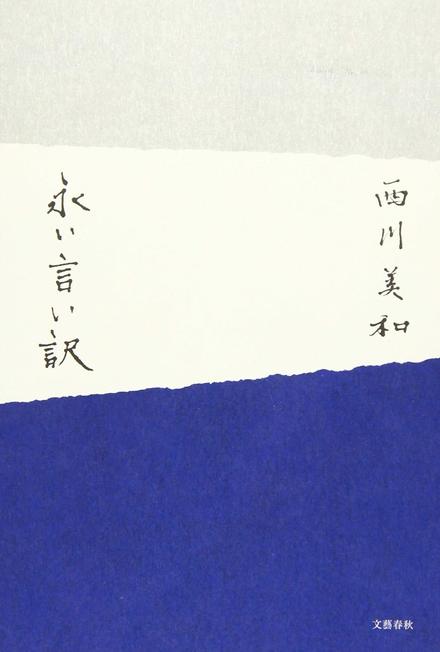 西川美和
永い言い訳
文藝春秋